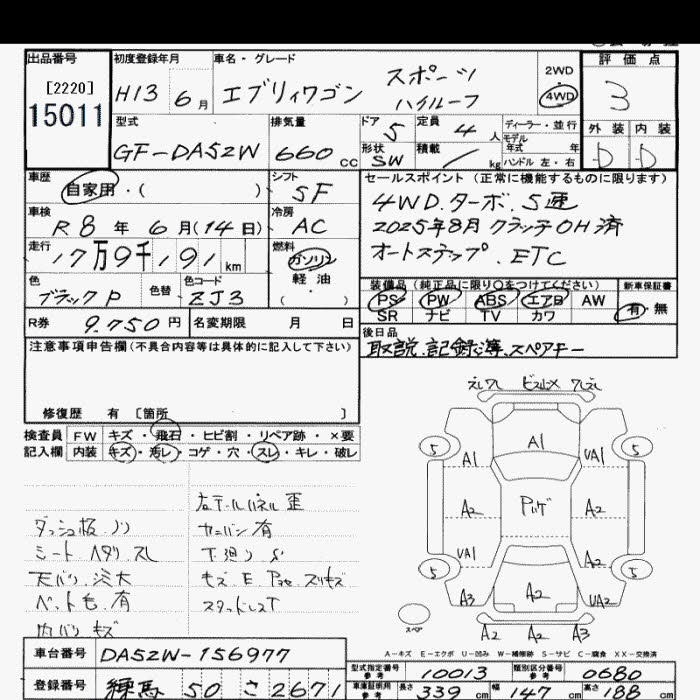 出品番号
[2220]
15011
初度登録年月
H13年 6月
車名・グレード
エブリィワゴン
スポーツ
ハイルーフ
2WD
4WD
評価点
3
外装 内装
D D
型式
GF-DA52W
排気量
660 cc
ドア
5
定員
4人
形状
SW
積載
/ kg
ディーラー・並行
モデル年式 年
ハンドル 左・右
車歴
自家用・( )
シフト
5F
車検
R8年 6月(14日)
冷房
AC
走行
17万9千191 km
燃料
ガソリン
軽油
( ・ )
色
ブラックP
色替
色コード
ZJ3
R券
9.750円
名変期限 月 日
セールスポイント (正常に機能するものに限ります)
4WD.ターボ.5速
2025年8月 クラッチOH済
オートステップ.ETC
装備品(純正品に限り○をつけてください)
PS PW ABS エアB AW
SR ナビ TV カワ
新車保証書
有・無
後日品
取説.記録簿.スペアキー
注意事項申告欄(不具合内容等は具体的に記入して下さい)
修復歴 有 〔箇所 〕
検査員記入欄
FW キズ・飛石・ヒビ割・リペア跡・×要
内装 キズ・汚レ・コゲ・穴・スレ・キレ・破レ
ダッシュ板 ノリ
シート ヘタリ スレ
天バリ 汚大
ペット毛 有
内バリ キズ
右テールパネル 歪
カーバン有
下廻り S
スタッドレスT
A1
A1
UA1
5
5
A2
A2
UA1
A2
5
5
A3
A2
UA2
スペア
A2 A2 A3
A-キズ E-エクボ U-凹み W-補修跡 S-サビ C-腐食 XX-交換済
車台番号
DA52W-156977
登録番号
練馬 50 さ 2671
型式指定番号 参考
10013
類別区分番号 参考
0680
車庫証明用 参考
長さ 339cm 幅 147cm 高さ 188cm